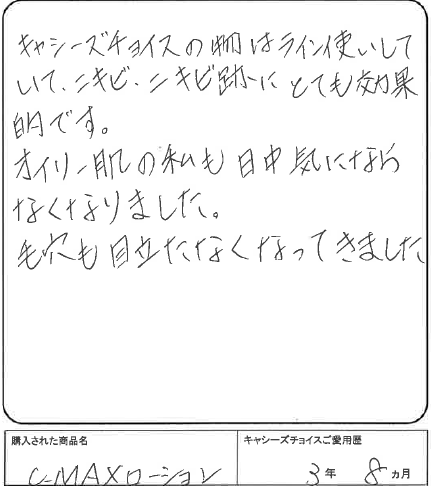 キャシーズチョイスの物はライン使いして
いて、ニキビ・ニキビ跡にとても効果
的です。
オイリー肌の私も日中気になら
なくなりました。
毛穴も目立たなくなってきました
購入された商品名
キャシーズチョイスご愛用歴
C-MAXローション
3年 8ヵ月